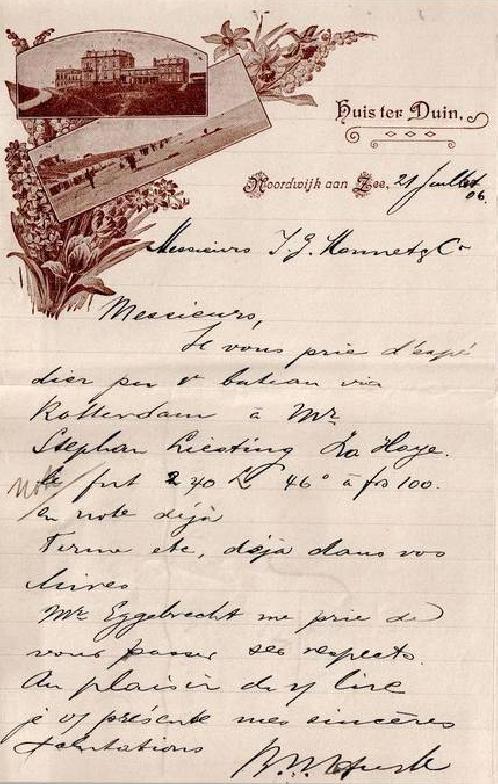 Huis ter Duin.
Noordwijk aan Zee, 21 Juillet
06.
Messieurs J. G. Monnet & Co
Messieurs,
Je vous prie d'expé
dier par 1r bateau via
Rotterdam à Mr
Stephan La Haye.
note
le fut 270 L 46° à frs 100.
en note déjà
Terme etc, déjà dans vos
livres
Mr Eggebrecht me prie de
vous passer ses respects.
Au plaisir de v/ lire
je vs présente mes sincères
salutations